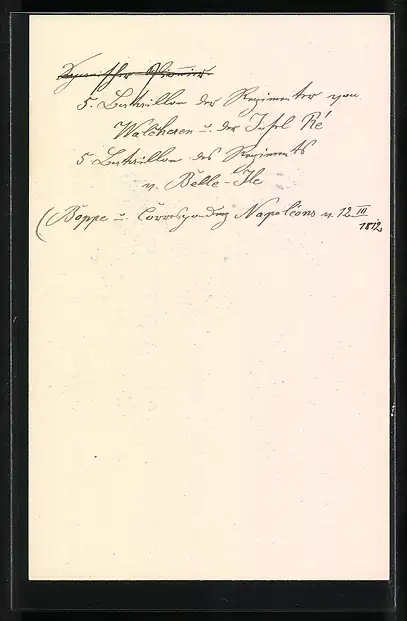 5. Bataillon der Regimenter von
Walcheren u. der Insel Ré
5. Bataillon des Regiments
v. Belle-Ile
(Boppe u. Correspondenz Napoléons v. 12 III
1812